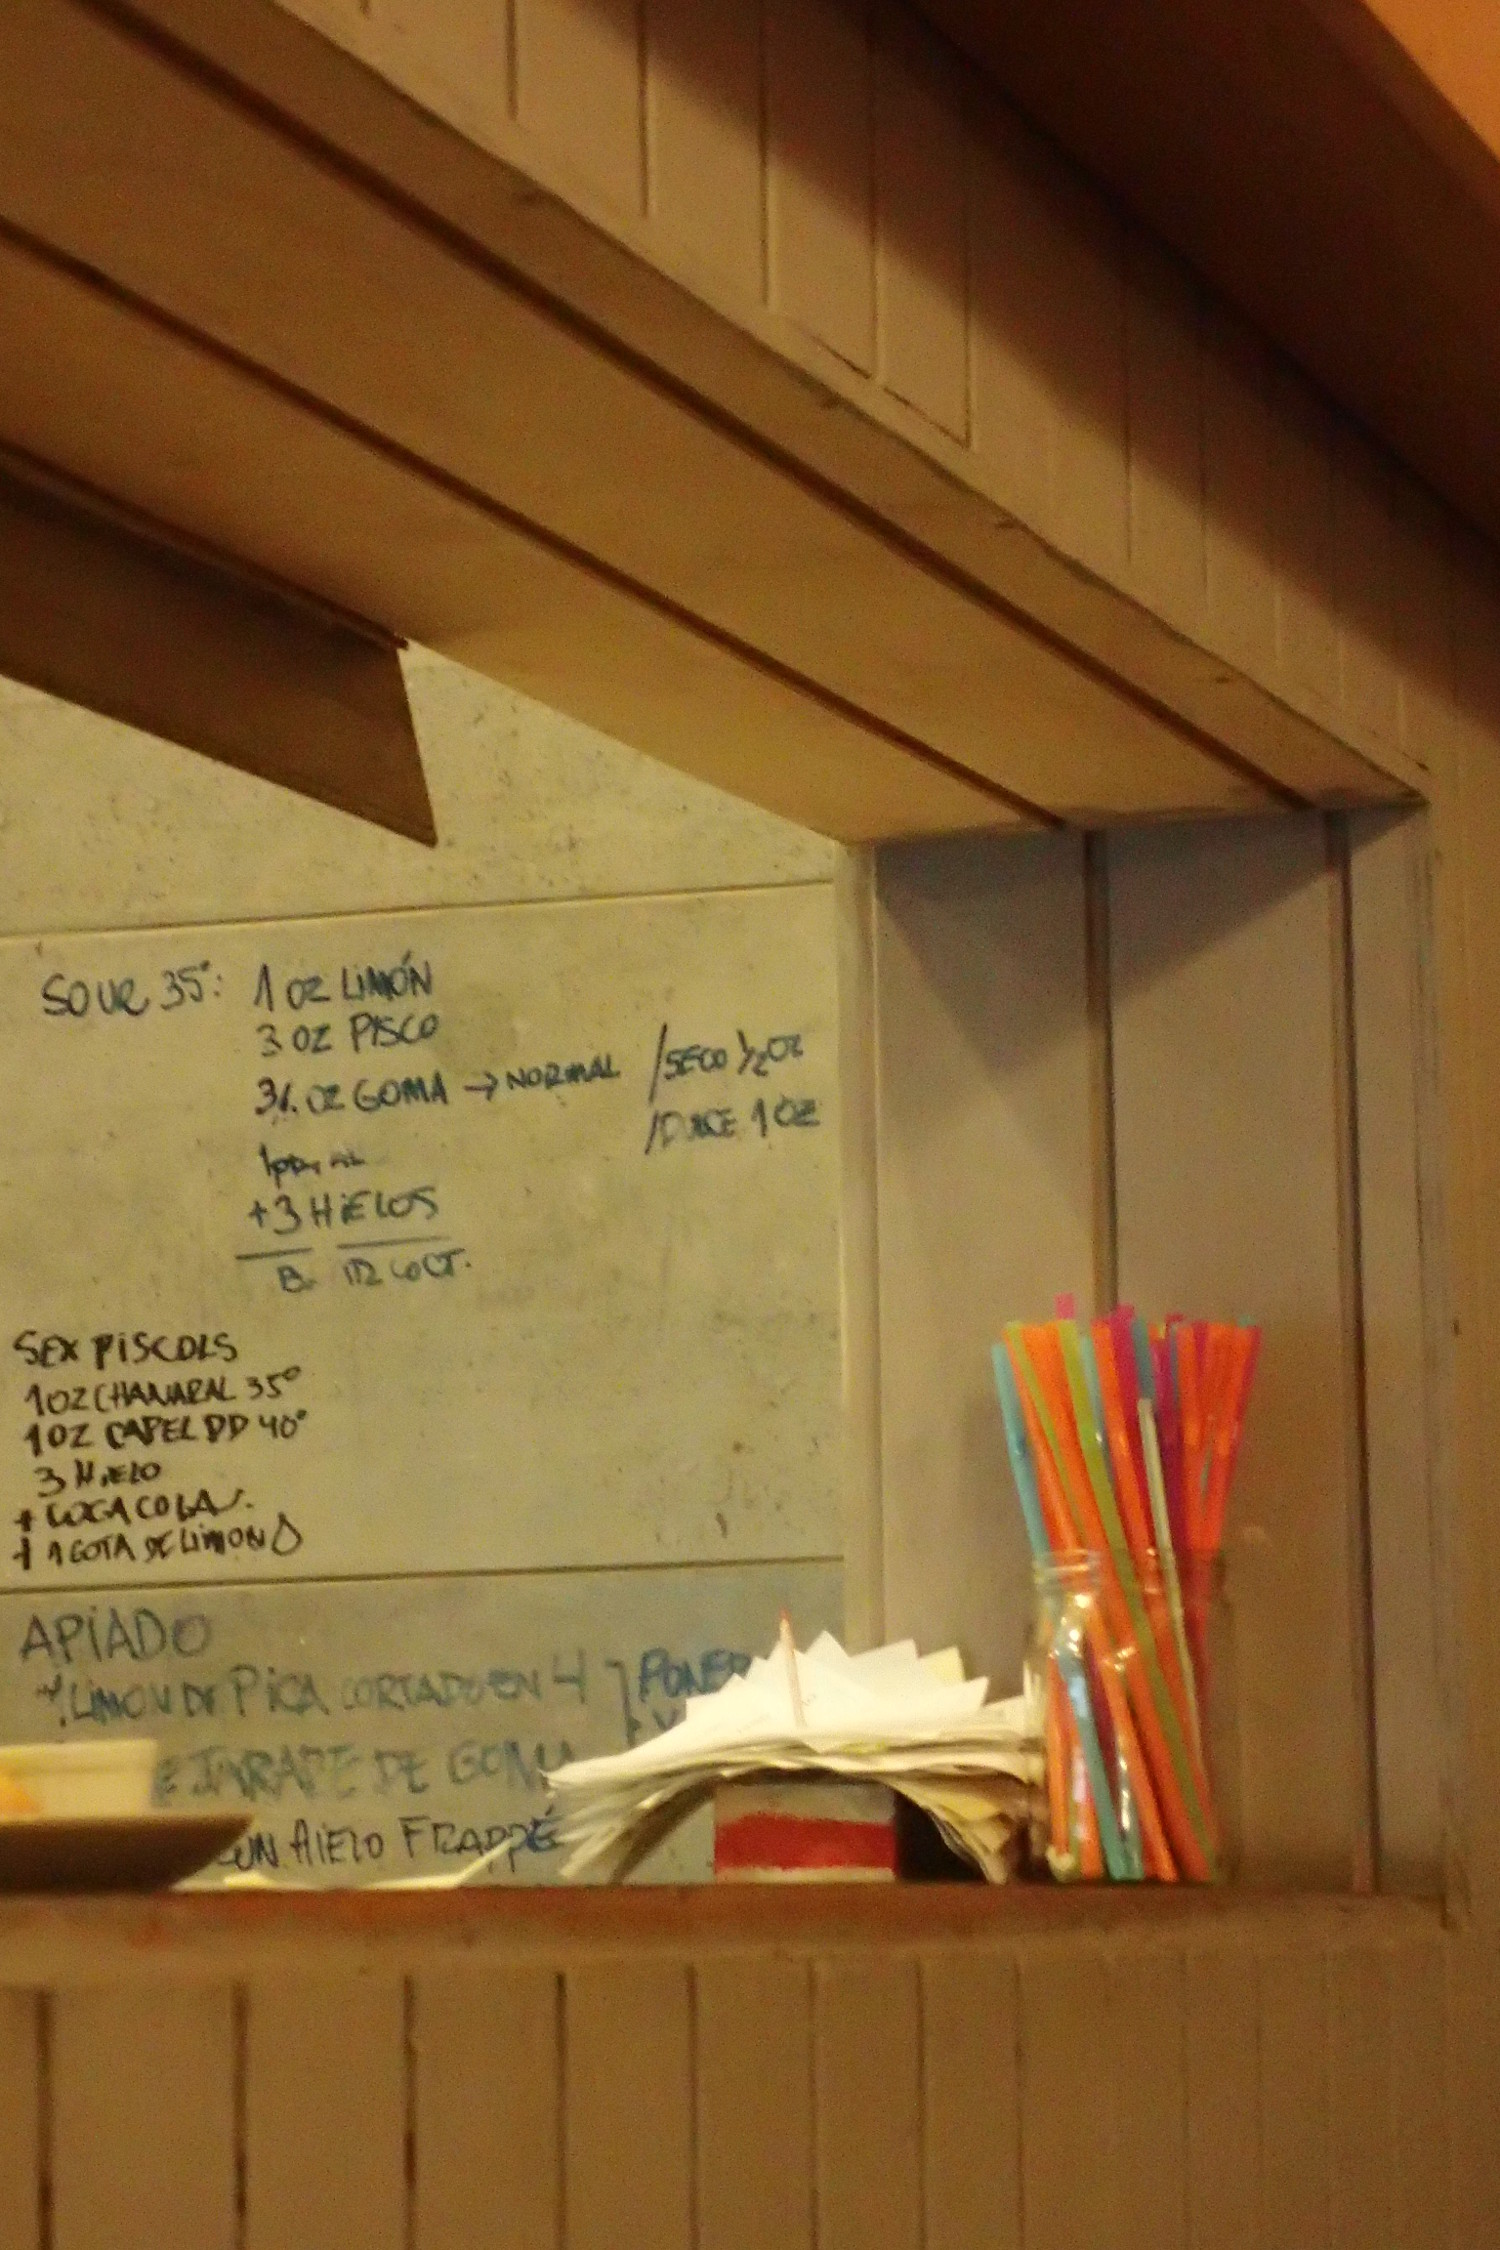 SOUR 35°: 1 OZ LIMÓN
3 OZ PISCO
OZ GOMA → NORMAL /SECO 1/2 OZ
/DULCE 1 OZ
+3 HIELOS
SEX PISCOLS
1 OZ CHAÑARAL 35°
1 OZ CAPEL DD 40°
3 HIELO
+ COCA COLA
+ 1 GOTA DE LIMON
APIADO
LIMON DE PICA CORTADO EN 4 PONER
JARAPE DE GOMA
UN HIELO FRAPPÉ